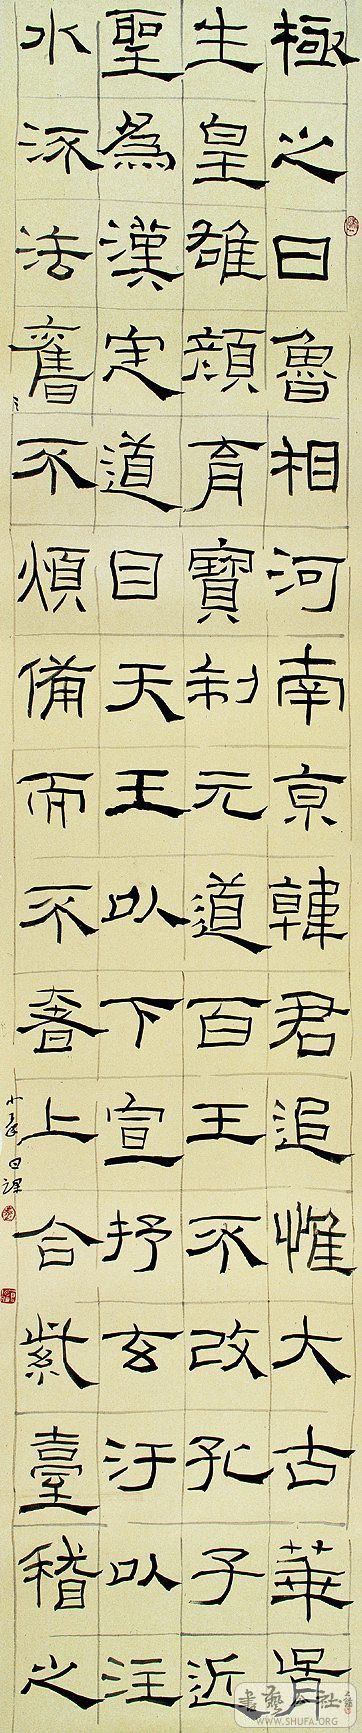 極之日魯相河南京韓君追惟大古華胥
生皇雄顏育寶制元道百王不改孔子近
聖為漢定道目天王以下宣抒玄汙以注
水流法舊不煩備而不奢上合紫臺稽之
日課
書藝公社
WWW.SHUFA.ORG